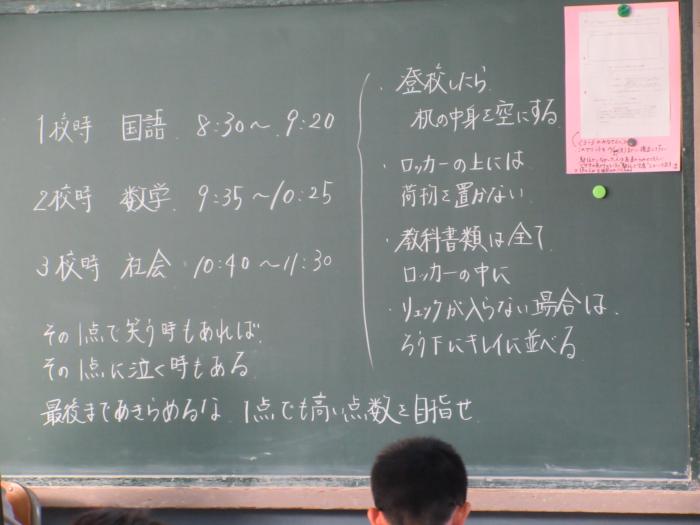 1校時 国語 8:30〜9:20
2校時 数学 9:35〜10:25
3校時 社会 10:40〜11:30
その1点で笑う時もあれば
その1点に泣く時もある
最後まであきらめるな 1点でも高い点数を目指せ
・登校したら
机の中身を空にする
・ロッカーの上には
荷物を置かない
・教科書類は全て
ロッカーの中に
・リュックが入らない場合は、
ろう下にキレイに並べる